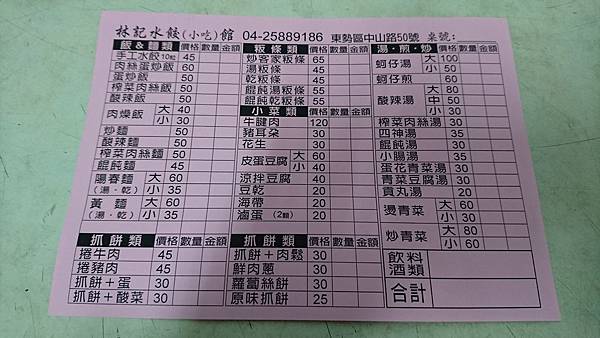 林記水餃(小吃)館 04-25889186 東勢區中山路50號 桌號:
飯&麵類 價格 數量 金額
手工水餃10粒 45
肉絲蛋炒飯 60
蛋炒飯 50
榨菜肉絲飯 50
酸辣飯 50
肉燥飯 大 40
小 30
炒麵 50
酸辣麵 50
榨菜肉絲麵 50
餛飩麵 45
陽春麵 大 60
(湯·乾) 小 35
黃麵 大 60
(湯·乾) 小 35
抓餅類 價格 數量 金額
捲牛肉 45
捲豬肉 45
抓餅+蛋 30
抓餅+酸菜 30
粄條類 價格 數量 金額
炒客家粄條 65
湯粄條 45
乾粄條 45
餛飩湯粄條 55
餛飩乾粄條 55
小菜類 價格 數量 金額
牛腱肉 120
豬耳朵 30
花生 30
皮蛋豆腐 大 60
小 40
涼拌豆腐 40
豆乾 20
海帶 20
滷蛋 (2顆) 20
抓餅類 價格 數量 金額
抓餅+肉鬆 30
鮮肉蔥 30
蘿蔔絲餅 30
原味抓餅 25
湯·煎·炒 價格 數量 金額
蚵仔湯 大 100
小 50
蚵仔煎 60
酸辣湯 大 80
中 50
小 30
榨菜肉絲湯 30
四神湯 35
餛飩湯 30
小腸湯 35
蛋花青菜湯 30
青菜豆腐湯 30
貢丸湯 20
燙青菜 大 60
小 30
炒青菜 大 80
小 60
飲料
酒類
合計